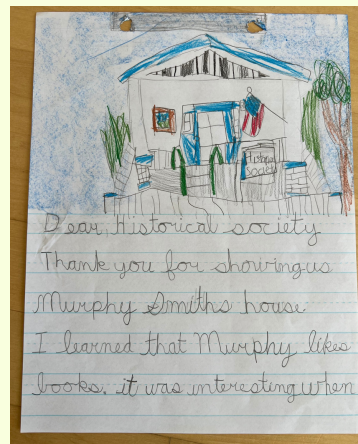 Historical
Society
Dear Historical society
Thank you for showing us
Murphy Smiths house
I learned that Murphy likes
books. it was interesting when